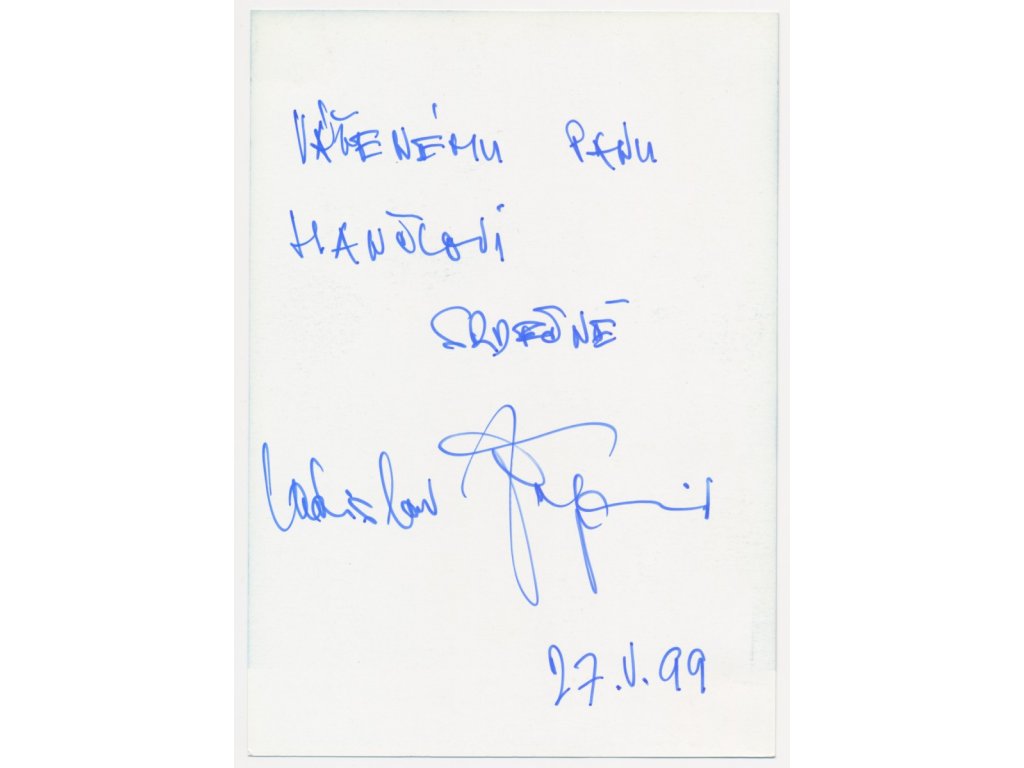 VÁŽENÉMU PANU
HANČLOVI
SRDEČNĚ
Ladislav
27.V.99